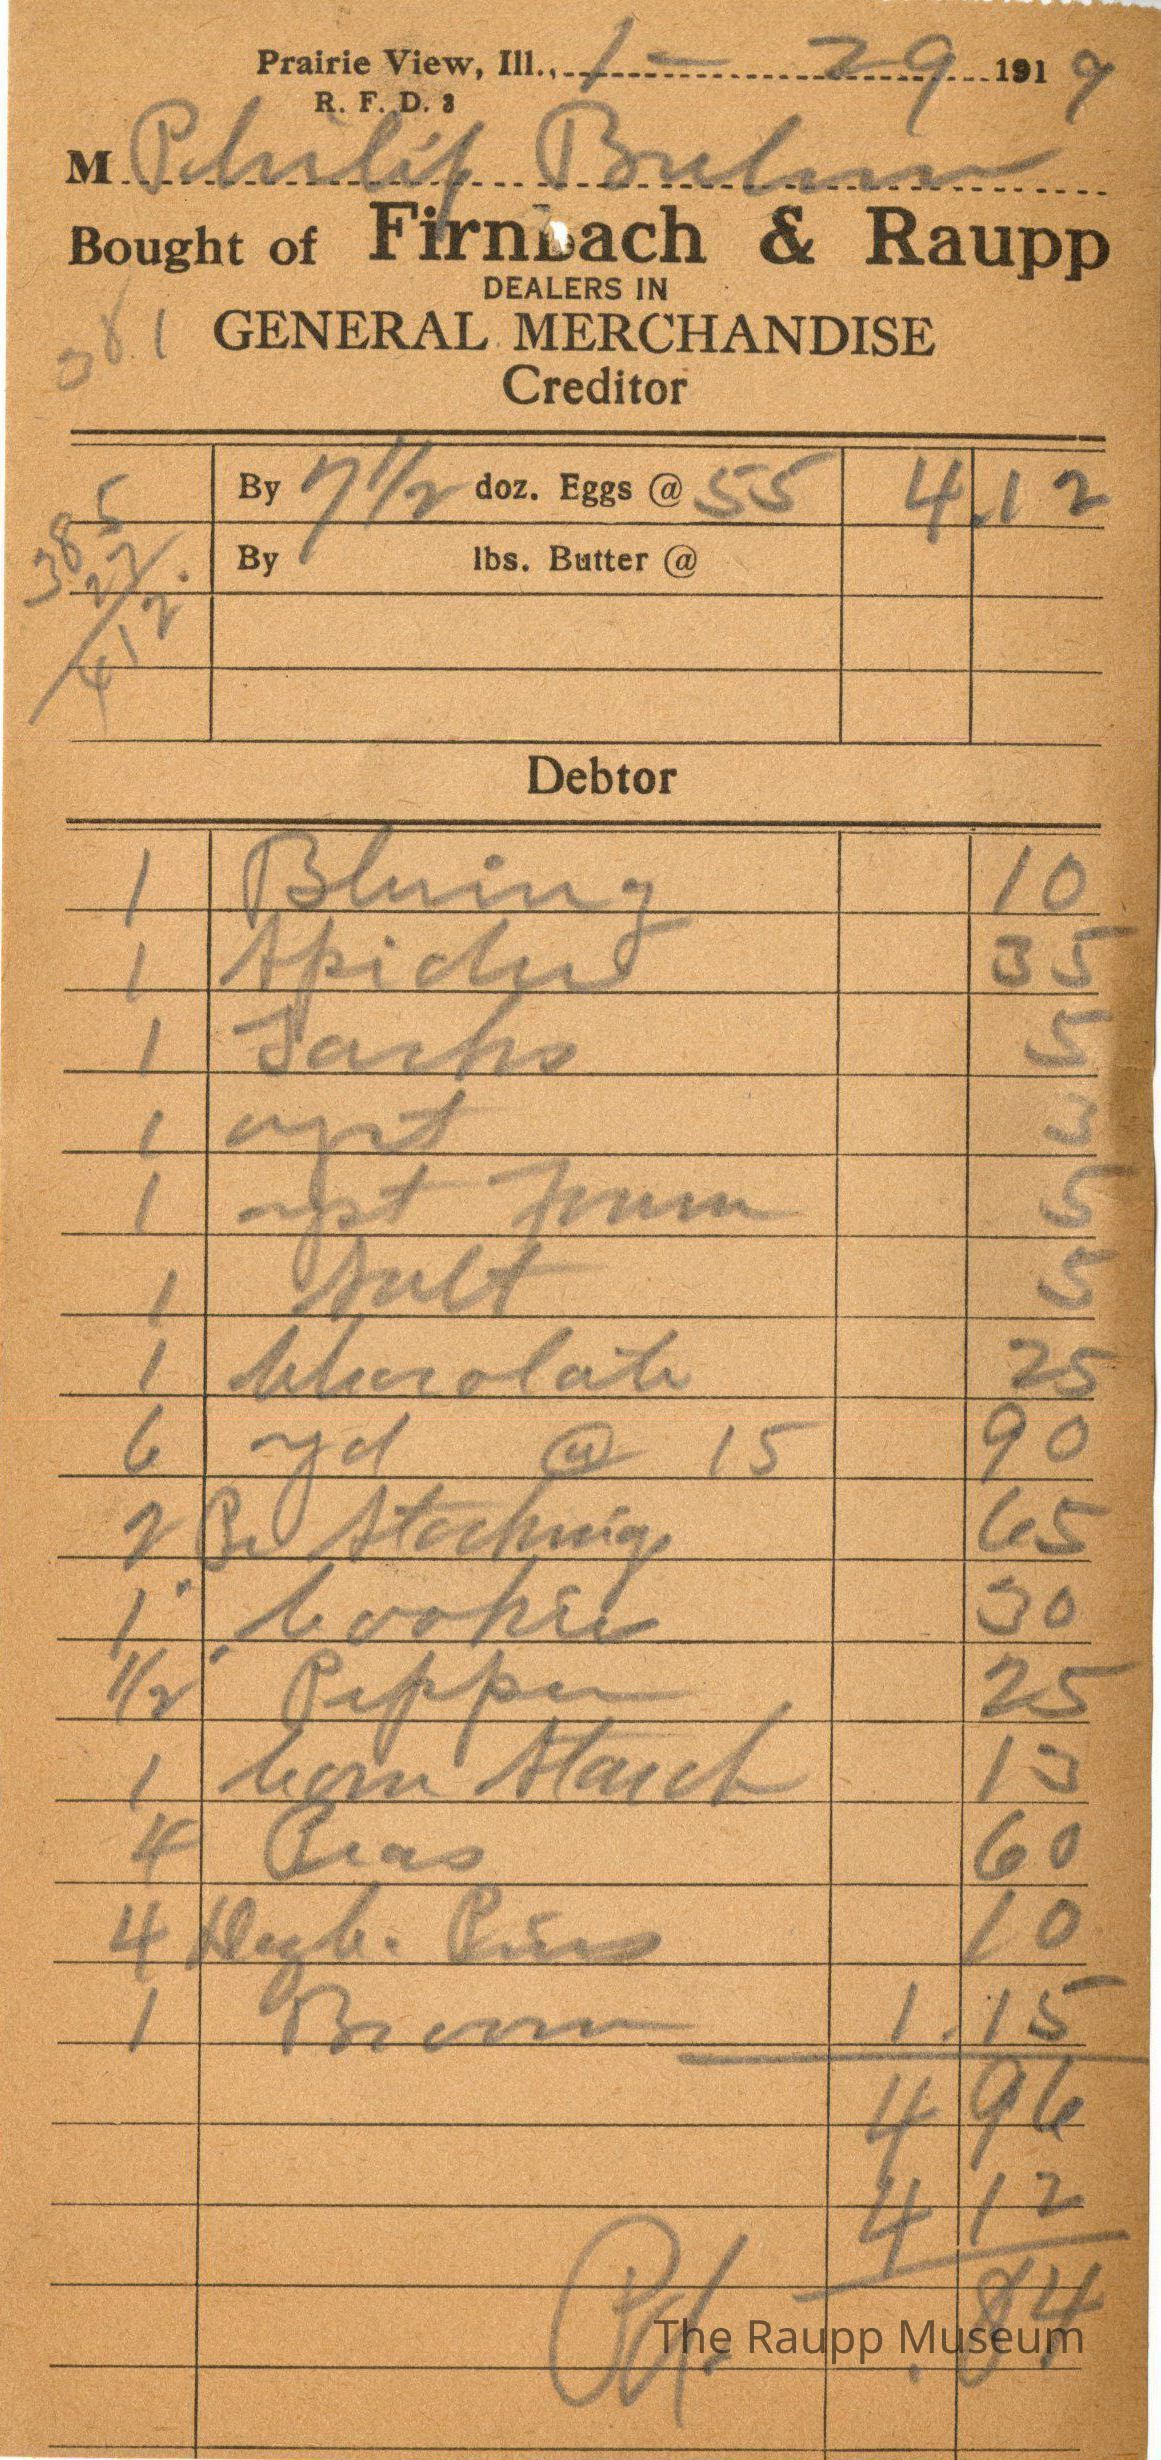 Prairie View, Ill., 1 - 29 1919
R. F. D. 3
M Philip Buhm
Bought of Firnbach & Raupp
DEALERS IN
GENERAL MERCHANDISE
381
Creditor
By 7 1/2 doz. Eggs @ 55 4.12
385
27
412
By lbs. Butter @
Debtor
1 Bluing 10
1 35
1 5
1 3
1 5
1 Salt 5
1 Chocolate 25
6 yd @ 15 90
2 Pr Stockings 65
1 Cookies 30
1/2 Pepper 25
1 Corn Starch 13
4 Peas 60
4 Pins 10
1 Broom 1.15
4 96
4 12
Pd. .84
The Raupp Museum